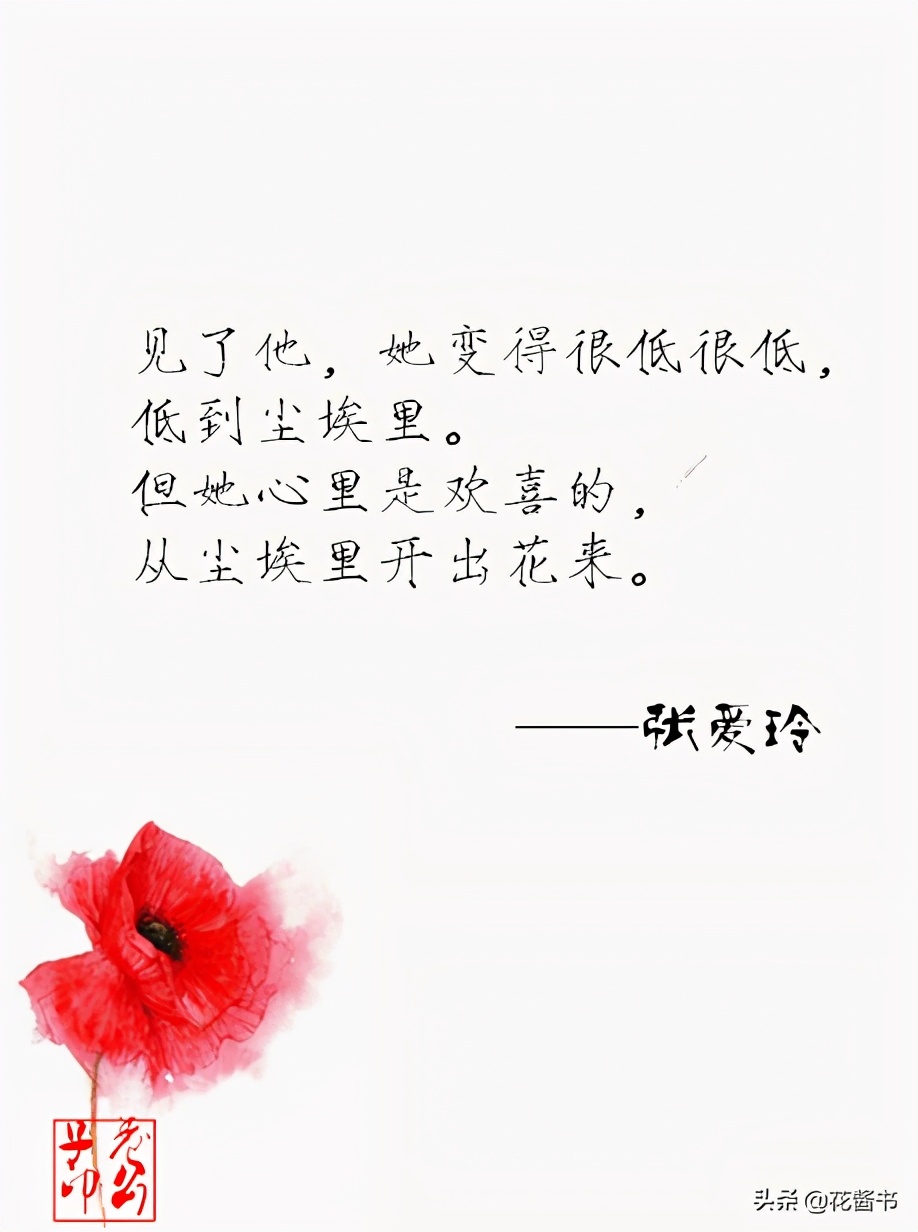 见了他，她变得很低很低，
低到尘埃里。
但她心里是欢喜的，
从尘埃里开出花来。
——张爱玲
头条 @花酱书